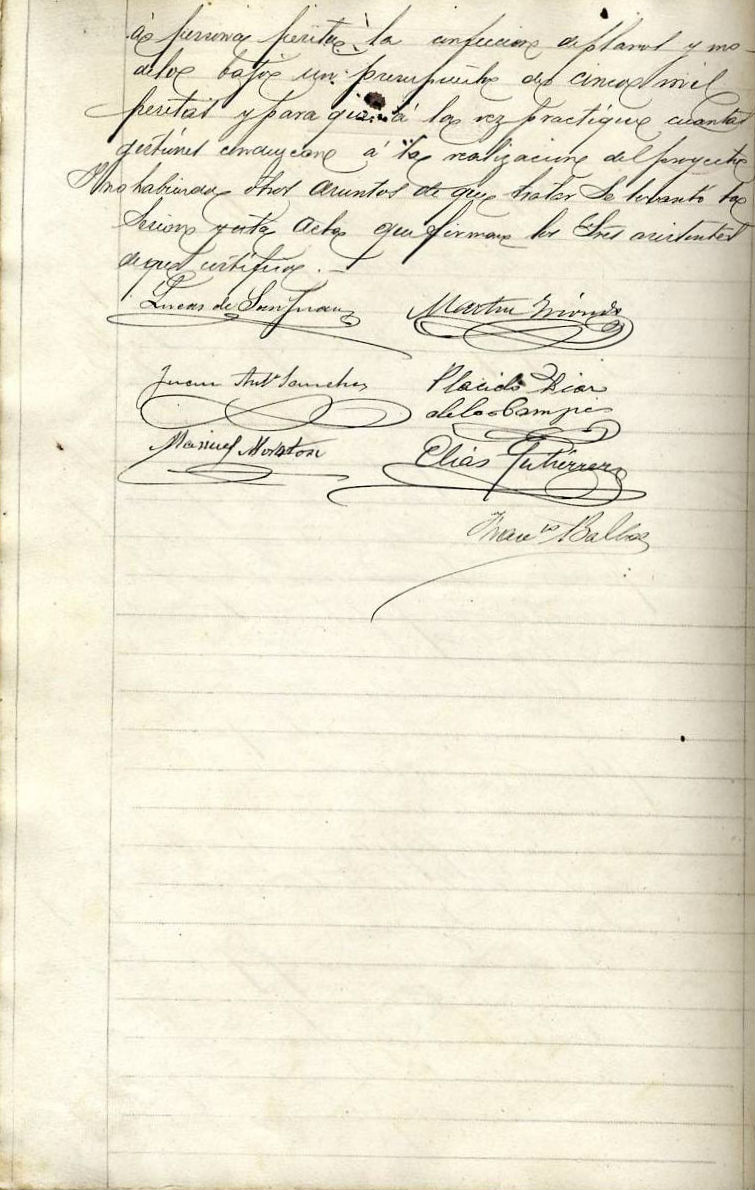 á persona perita la confeccion de planos y mo-
delos bajo un presupuesto de cinco mil
pesetas y para que á la vez practique cuantas
gestiones conduzcan á la realizacion del proyecto
Y no habiendo otros asuntos de que tratar se levantó la
sesion y esta acta que firman los Sres asistentes
de que certifico. —
Lucas de San Juan Martin
Juan Antº Sanchez Placido Diaz
de los Campos
Manuel Elias Gutierrez
Francº Balbas